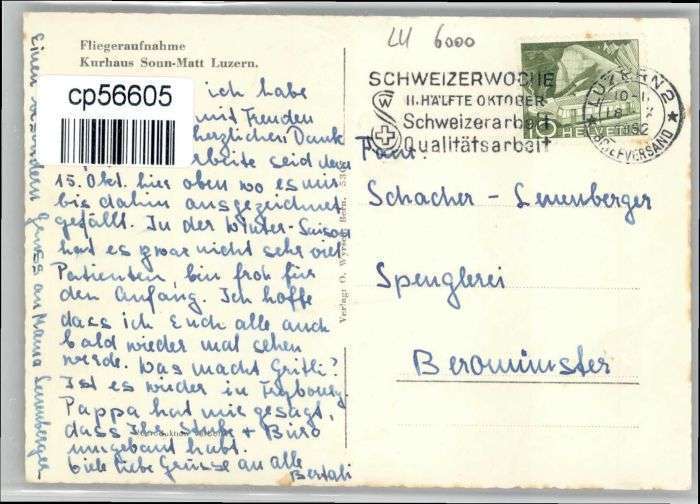 Fliegeraufnahme
Kurhaus Sonn-Matt Luzern.
cp56605
ich habe
mit Freuden
herzlichen Dank
arbeite seid dem
15. Okt. hier oben wo es mir
bis dahin ausgezeichnet
gefällt. In der Winter-Saison
hat es zwar nicht sehr viel
Patienten, bin froh für
den Anfang. Ich hoffe
dass ich Euch alle auch
bald wieder mal sehen
werde. Was macht Gritli?
Ist es wieder in Freybourg
Pappa hat mir gesagt,
dass Ihr Stube + Büro
umgebaut habt.
Viele liebe Grüsse an alle
Bertali
Einen Gruss an Mama Leuenberger
Verlag: O. Wyrsch, Bern.
LU 6000
SCHWEIZERWOCHE
II. HÄLFTE OKTOBER
Schweizerarbeit
Qualitätsarbeit
LUZERN 2
1952
BRIEFVERSAND
5 HELVETIA
Fam.
Schacher-Leuenberger
Spenglerei
Beromünster